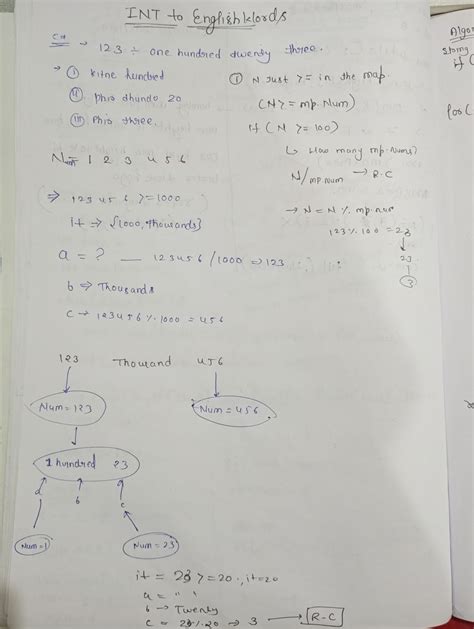 INT to English Words
eg → 123 ÷ one hundred twenty three.
→ ① kitne hundred
② phir dhundo 20
③ Phir three.
① N just >= in the map
(N >= mp.Num)
if (N >= 100)
↳ How many mp.Nums)
N/mp.num → R.C
→ N = N % mp.num
123 % 100 = 23
23
③
Num = 1 2 3 4 5 6
⇒ 123456 >= 1000
It ⇒ {1000, thousands}
a = ? — 123456 / 1000 ⇒ 123
b ⇒ Thousands
c → 123456 % 1000 = 456
123 Thousand 456
Num = 123
Num = 456
1 hundred 23
a b c
Num = 1
Num = 23
it = 23 >= 20 ∴ it = 20
a = " "
b → Twenty
c = 23 % 20 → 3 → R-C
Algor
String
if (
for (